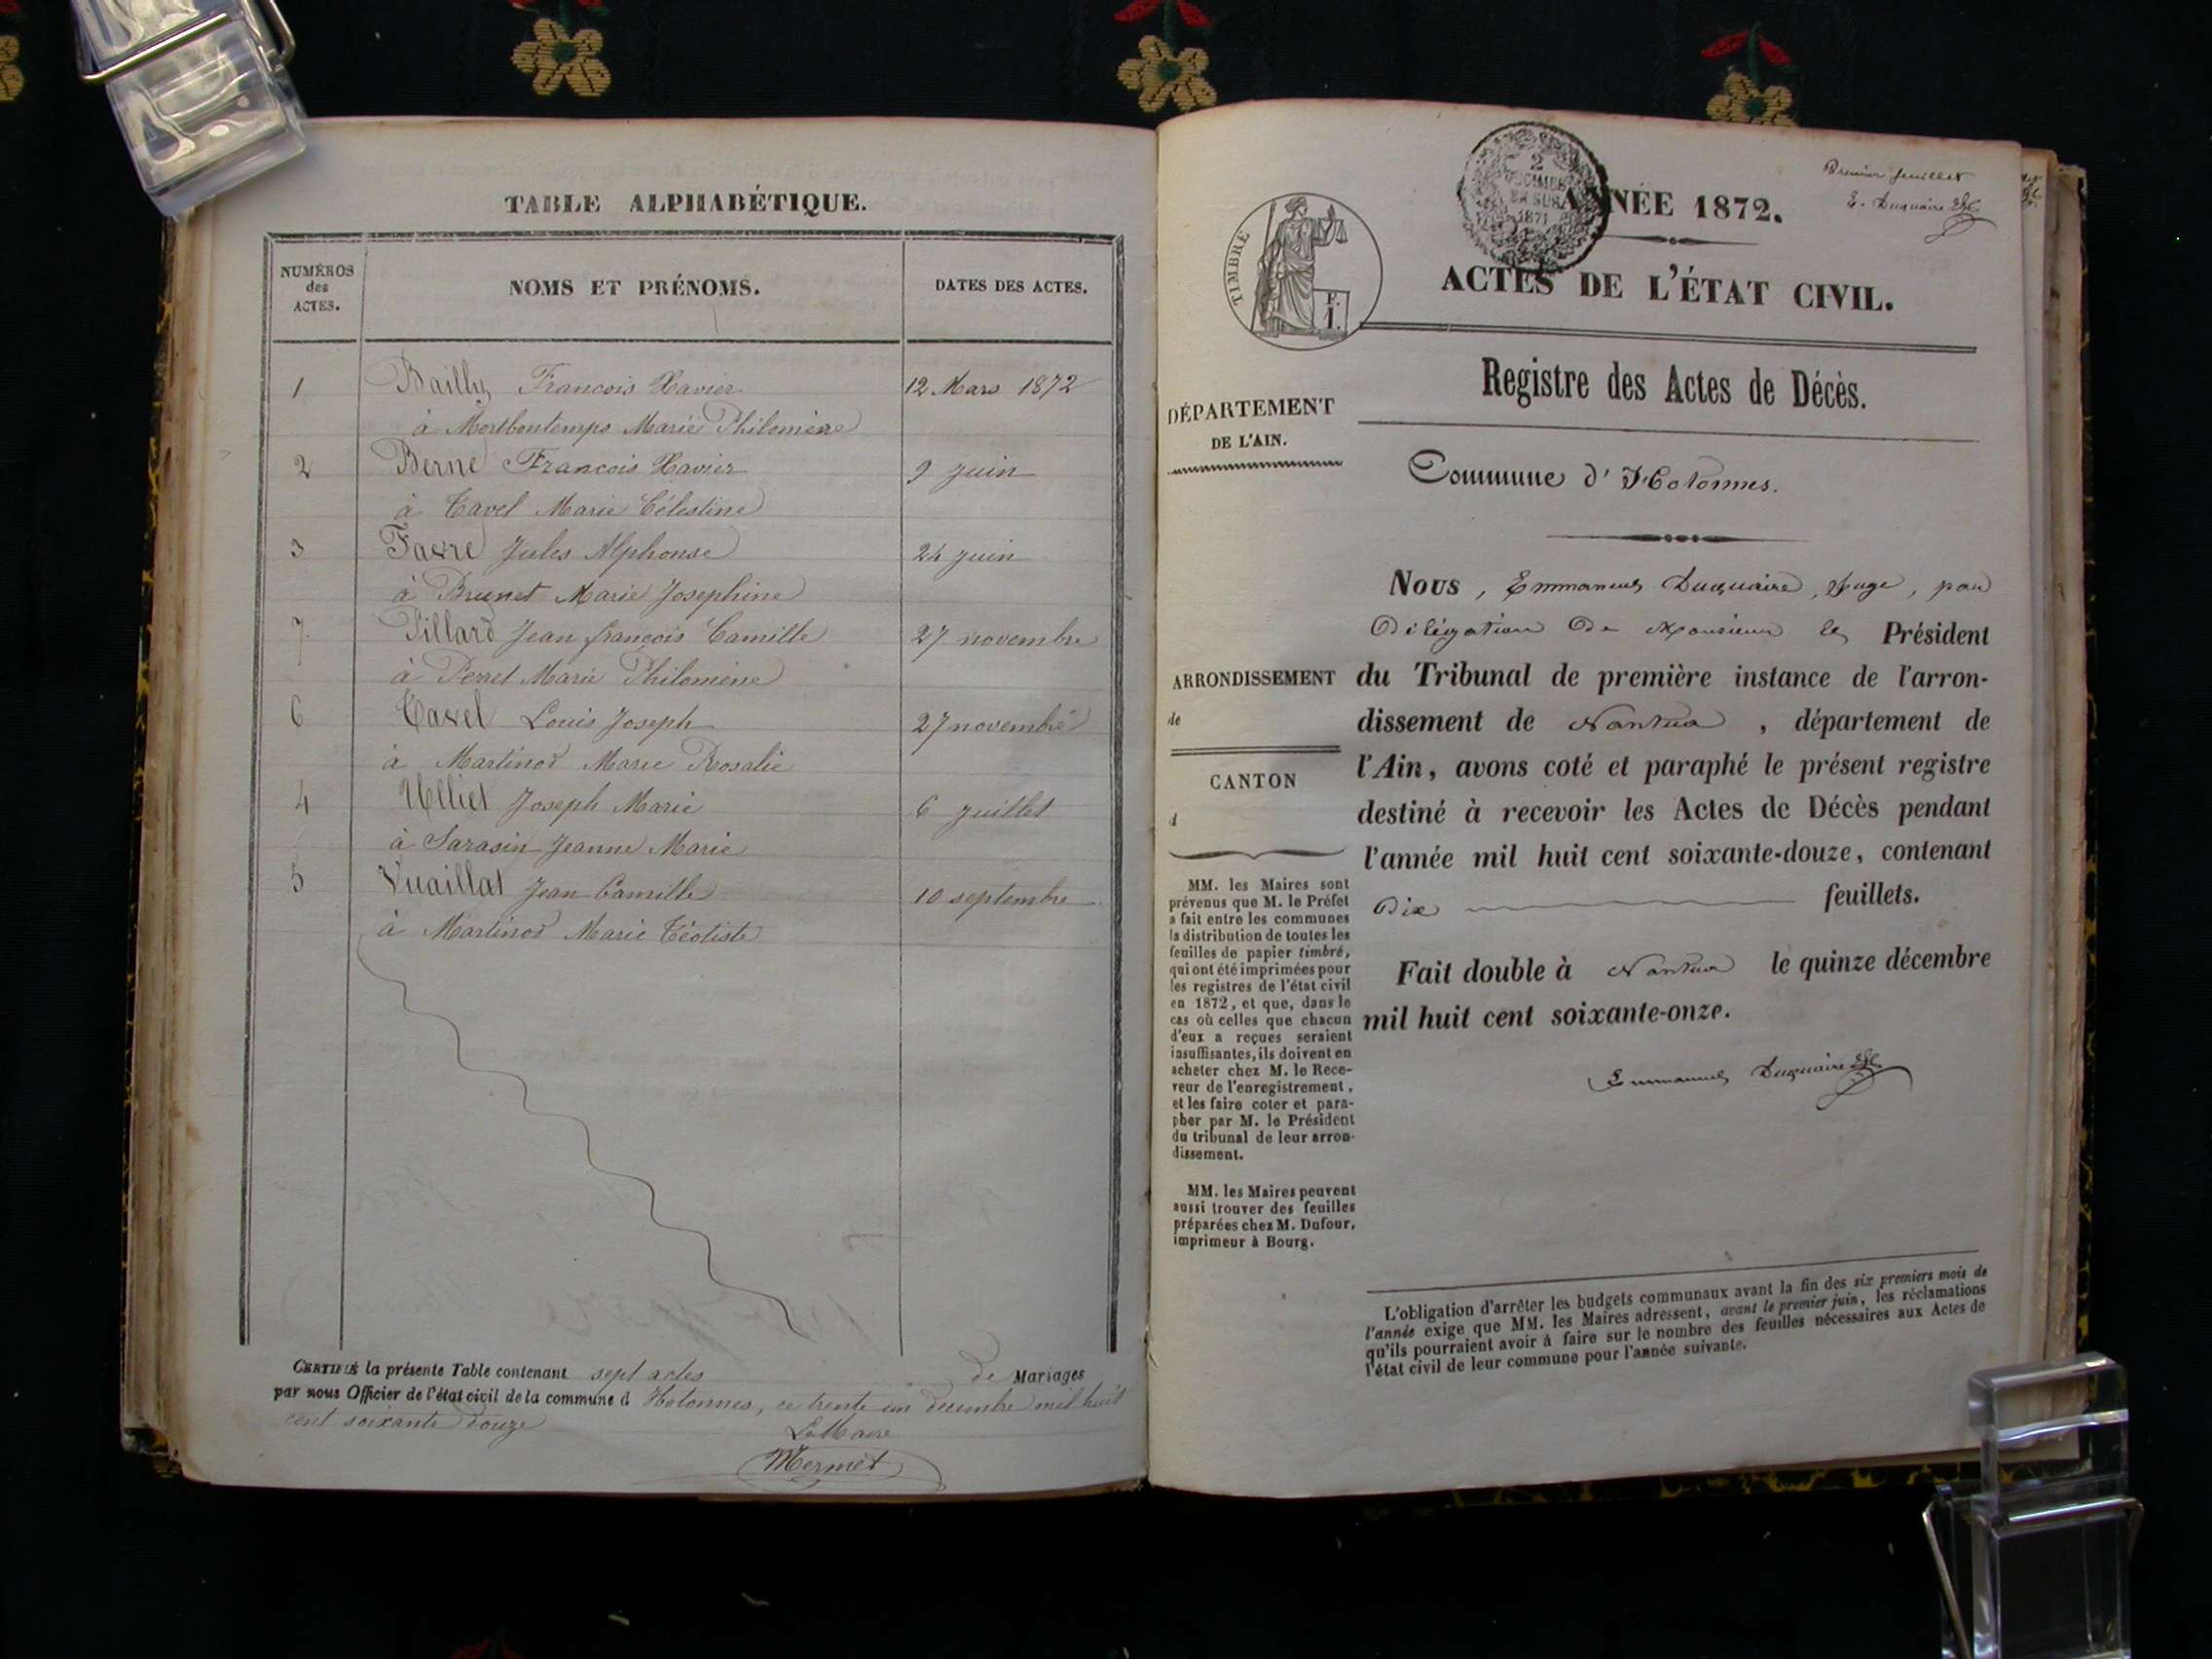 TABLE ALPHABÉTIQUE.
NUMÉROS
des
ACTES.
NOMS ET PRÉNOMS.
DATES DES ACTES.
1 Bailly François Xavier 12 Mars 1872
à Montbontemps Marie Philomène
2 Berne François Xavier 9 juin
à Tavel Marie Célestine
3 Favre Jules Alphonse 24 juin
à Brunet Marie Josephine
7 Pillard Jean françois Camille 27 novembre
à Perret Marie Philomène
6 Tavel Louis Joseph 27 novembre
à Martinod Marie Rosalie
4 Ulliet Joseph Marie 6 juillet
à Sarasin Jeanne Marie
5 Vuaillat Jean Camille 10 septembre
à Martinod Marie Téotiste
CERTIFIÉ la présente Table contenant sept actes de Mariages
par nous Officier de l'état civil de la commune d Hotonnes, ce trente un decembre mil huit
cent soixante douze
Le Maire
Mermet
Premier feuillet
E. Duquaire
TIMBRE
F.
I.
2
1871
ANNÉE 1872.
ACTES DE L'ÉTAT CIVIL.
Registre des Actes de Décès.
DÉPARTEMENT
DE L'AIN.
Commune d'Hotonnes.
Nous, Emmanuel Duquaire, Juge, par
Délégation de Monsieur le Président
ARRONDISSEMENT
de
du Tribunal de première instance de l'arron-
dissement de Nantua, département de
l'Ain, avons coté et paraphé le présent registre
destiné à recevoir les Actes de Décès pendant
l'année mil huit cent soixante-douze, contenant
Dix feuillets.
Fait double à Nantua le quinze décembre
mil huit cent soixante-onze.
Emmanuel Duquaire
CANTON
d
MM. les Maires sont
prévenus que M. le Préfet
a fait entre les communes
la distribution de toutes les
feuilles de papier timbré,
qui ont été imprimées pour
les registres de l'état civil
en 1872, et que, dans le
cas où celles que chacun
d'eux a reçues seraient
insuffisantes, ils doivent en
acheter chez M. le Rece-
veur de l'enregistrement,
et les faire coter et para-
pher par M. le Président
du tribunal de leur arron-
dissement.
MM. les Maires peuvent
aussi trouver des feuilles
préparées chez M. Dufour,
imprimeur à Bourg.
L'obligation d'arrêter les budgets communaux avant la fin des six premiers mois de
l'année exige que MM. les Maires adressent, avant le premier juin, les réclamations
qu'ils pourraient avoir à faire sur le nombre des feuilles nécessaires aux Actes de
l'état civil de leur commune pour l'année suivante.